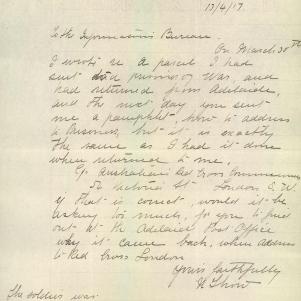 13/4/17.
To the Information Bureau.
On March 30th
I wrote re a parcel I had
sent prisoner of War, and
had returned from Adelaide,
and the next day you sent
me a pamphlet, how to address
a Prisoner, but it is exactly
the same as I had it done
when returned to me.
C/o Australian Red Cross Commissioners
54 Victoria St London, S.W.
if that is correct, would it be
asking too much, for you to find
out at the Adelaide Post Office
why it came back, when address
to Red Cross London
Yours faithfully
The soldier was